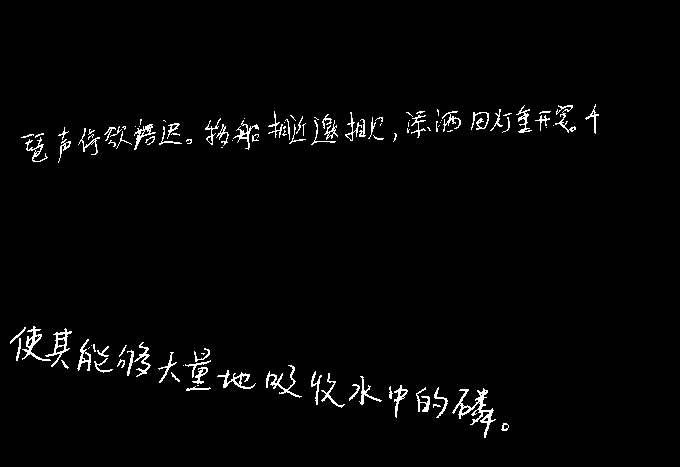 琶声停欲语迟。移船相近邀相见,添酒回灯重开宴。千
使其能够大量地吸收水中的磷。